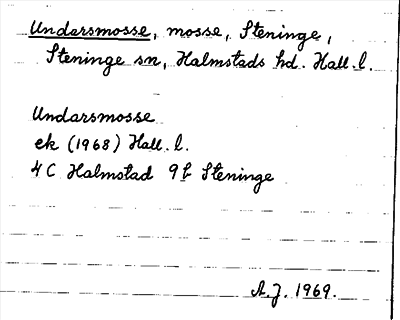 Undarsmosse, mosse, Steninge,
Steninge sn, Halmstads hd. Hall. l.
Undarsmosse
ek (1968) Hall. l.
4C Halmstad 9b Steninge
A.J. 1969.